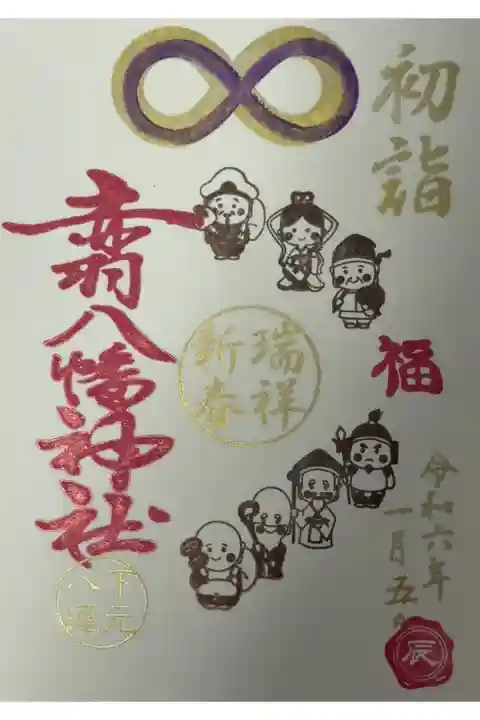 初詣
福
令和六年
一月五日
辰
瑞祥
新春
赤羽八幡神社
下元
八運